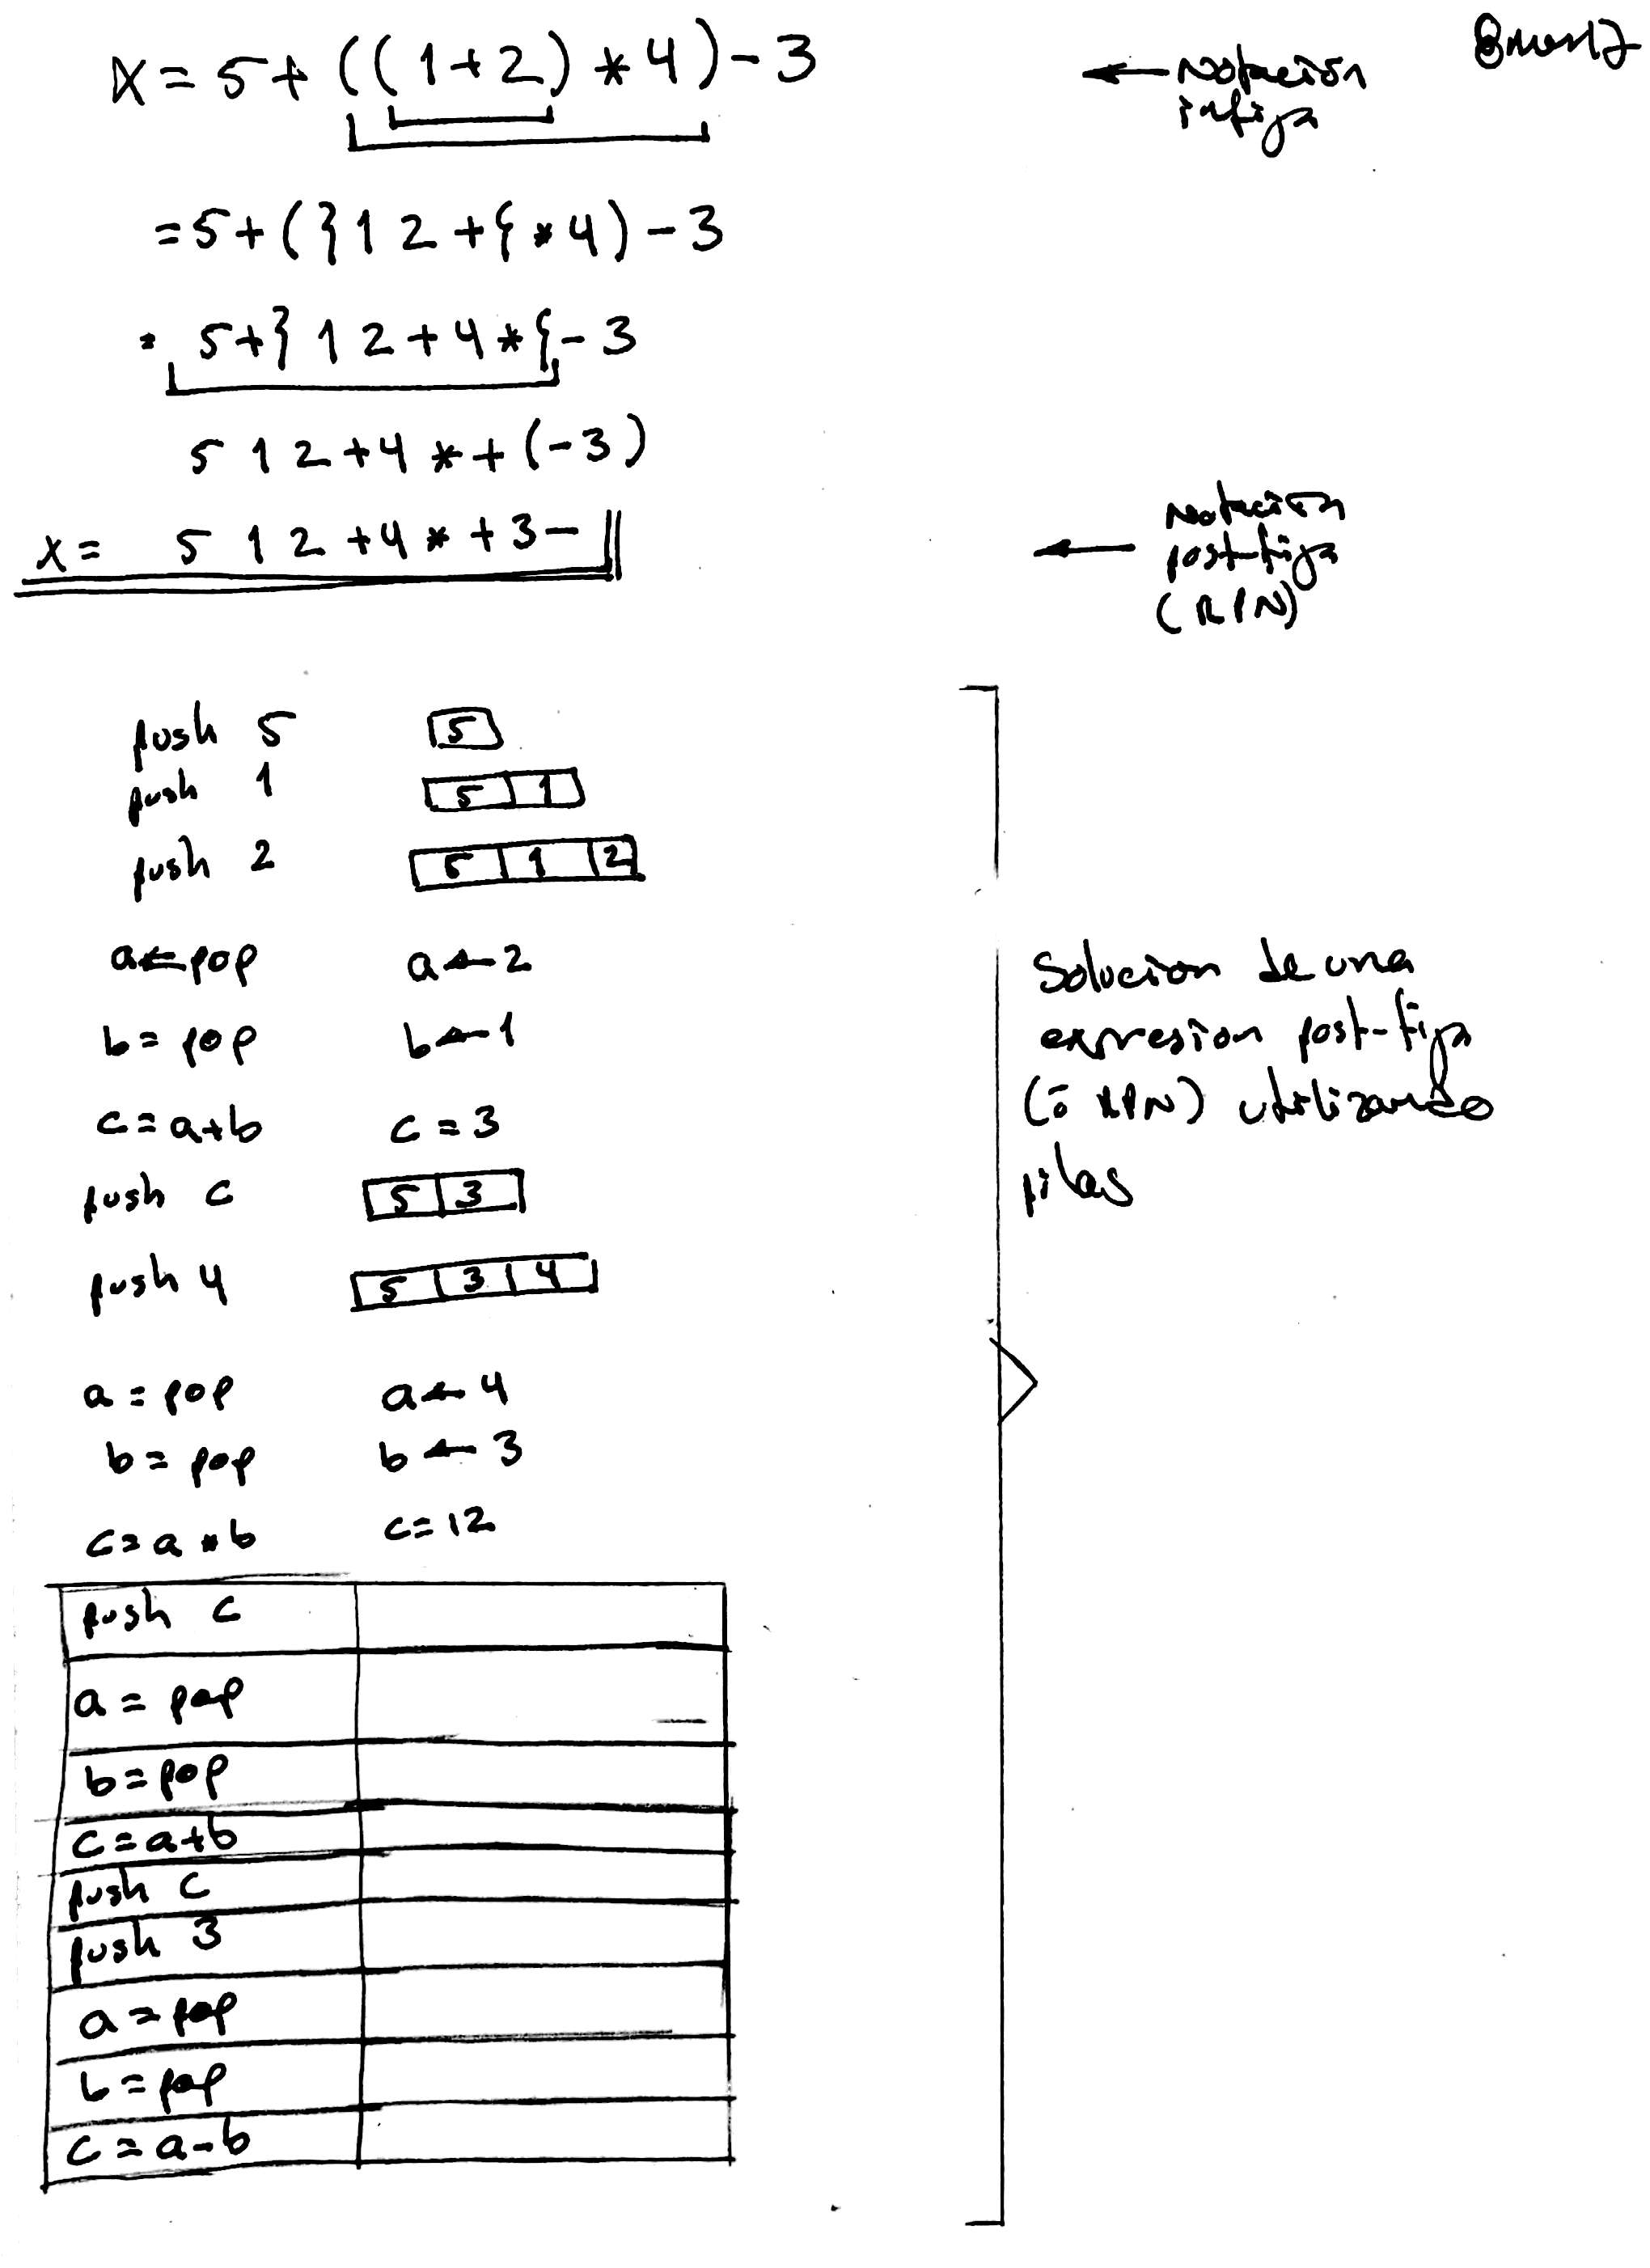 x = 5 + ((1+2) * 4) - 3
← Notación
infija
= 5 + ( } 1 2 + { * 4 ) - 3
= 5 + } 1 2 + 4 * { - 3
5 1 2 + 4 * + (-3)
x = 5 1 2 + 4 * + 3 -
← Notación
post-fija
(RPN)
push 5 5
push 1 5 1
push 2 5 1 2
a ← pop a ← 2
b = pop b ← 1
c = a+b c = 3
push c 5 3
push 4 5 3 4
a = pop a ← 4
b = pop b ← 3
c = a * b c = 12
push c
a = pop
b = pop
c = a+b
push c
push 3
a = pop
b = pop
c = a-b
Solucion de una
expresion post-fija
(ó RPN) utilizando
pilas